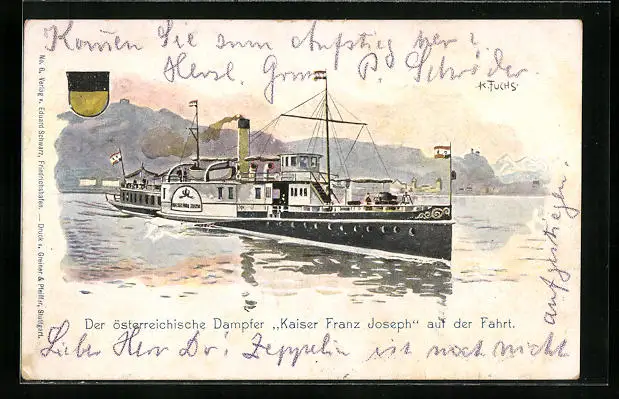 Kommen Sie zum Aufstieg her?
Herzl. Gruss P. Schröder
K. FUCHS.
No. 6. Verlag v. Eduard Schwarz, Friedrichshafen. — Druck v. Greiner & Pfeiffer, Stuttgart.
Der österreichische Dampfer „Kaiser Franz Joseph" auf der Fahrt.
Lieber Herr Dr! Zeppelin ist noch nicht
aufgestiegen.